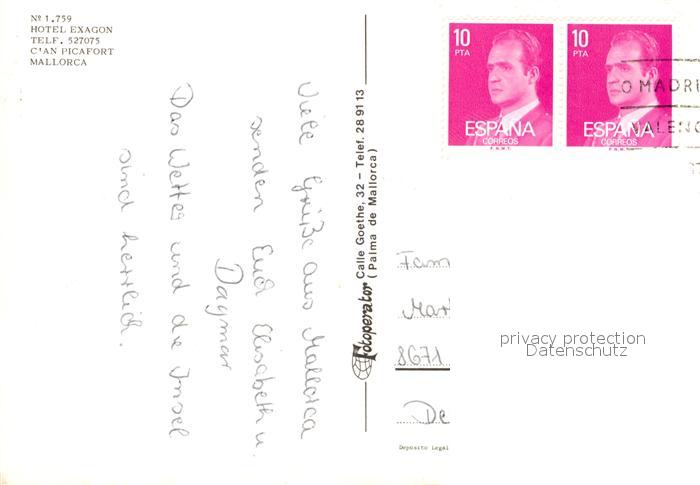 Nº 1.759
HOTEL EXAGON
TELF. 527075
C'AN PICAFORT
MALLORCA
Viele Grüße aus Mallorca
senden Euch Elisabeth u.
Dagmar
Das Wetter und die Insel
sind herrlich.
Fotoperator Calle Goethe, 32 – Telef. 28 91 13
(Palma de Mallorca)
10
PTA
ESPAÑA
CORREOS
F.N.M.T.
10
PTA
ESPAÑA
CORREOS
F.N.M.T.
O MADRI
VALENC
Fam
Mar
8671
De
Deposito Legal
privacy protection
Datenschutz